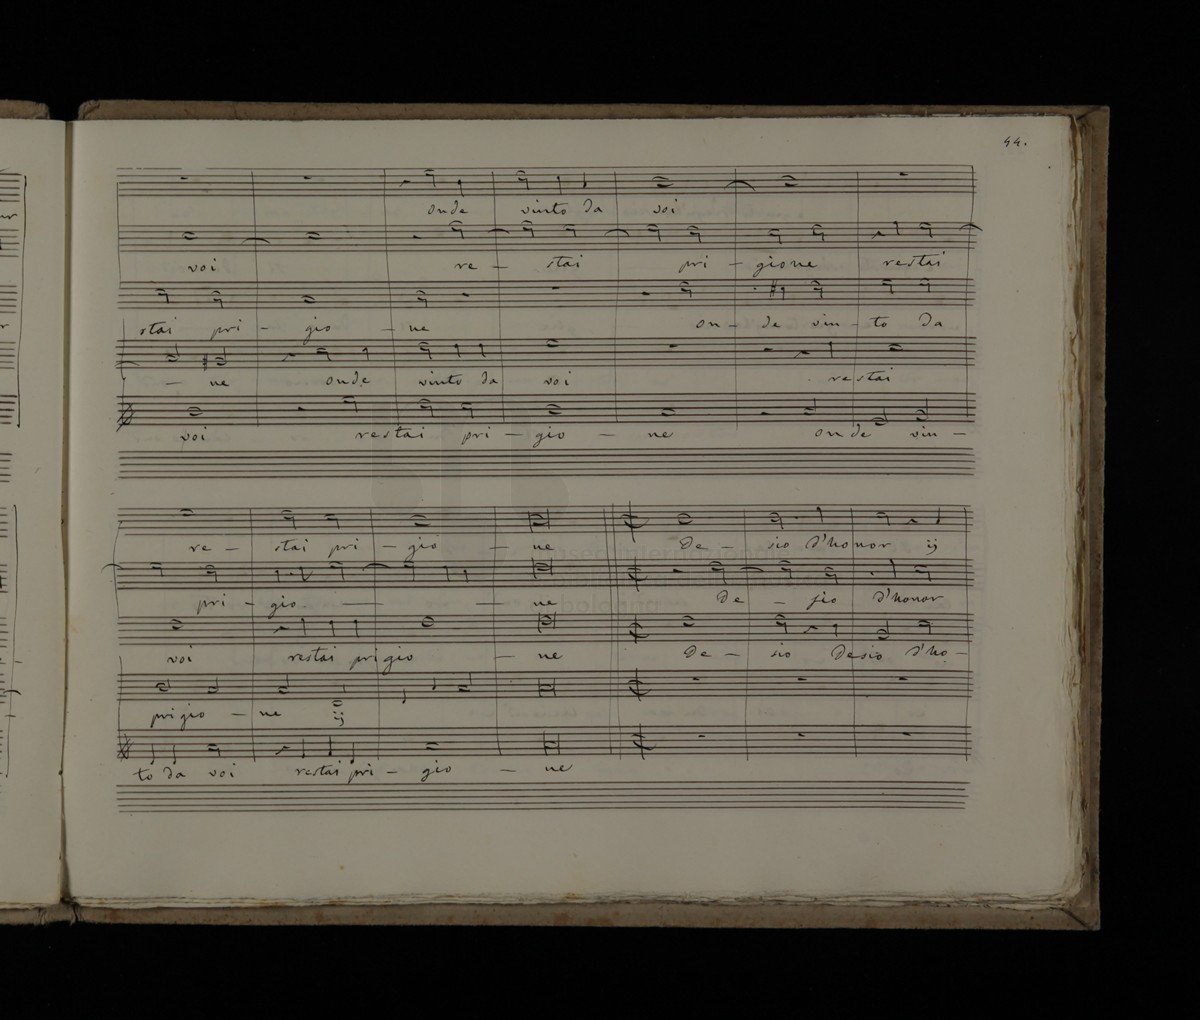 44.
onde vinto da voi
voi re - stai pri - gione restai
stai pri - gio - ne on - de vin - to da
- ne onde vinto da voi restai
voi restai pri - gio - ne onde vin -
re - stai pri - gio - ne De - sio d'honor ij
pri - gio - - ne De - sio d'honor
voi restai prigio - ne De - sio Desio d'ho -
prigio - ne ij
to da voi restai pri - gio - ne